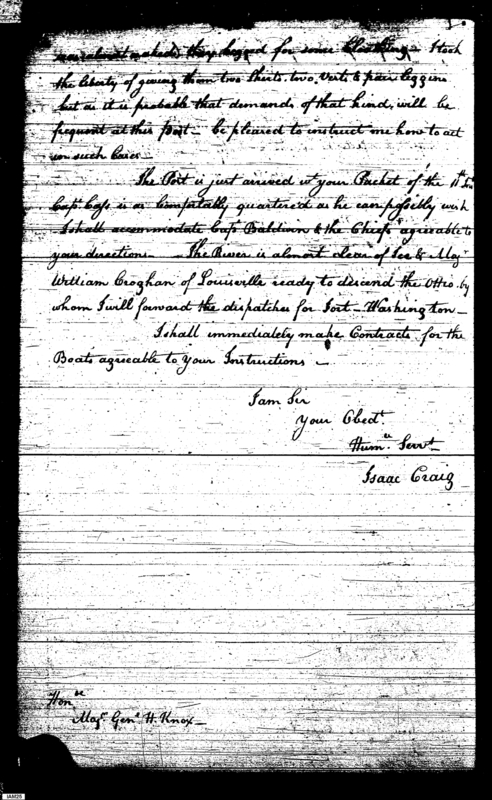 were almost naked they begged for some Cloathing I took
the liberty of giving them two Shirts two Vests & pair leggins
but as it is probable that demands of that kind, will be
frequent at this Post – be pleased to instruct me how to act
in such Cases –
The Post is just arrived wt your Packet of the 11th
Capt. Cass is as Comfortably quarter'd as he can possibly wish
I shall accommodate Capt Baldwin & the Chiefs agreeable to
your directions – The River is almost clear of Ice & Majr
William Croghan of Louisville ready to descend the Ohio by
whom I will forward the dispatches for Fort – Washington –
I shall immediately make Contracts for the
Boats agreeable to your Instructions –
I am Sir
Your Obedt.
Hume. Servt
Isaac Craig
Honbe
Majr. Genl H. Knox –
IAM25